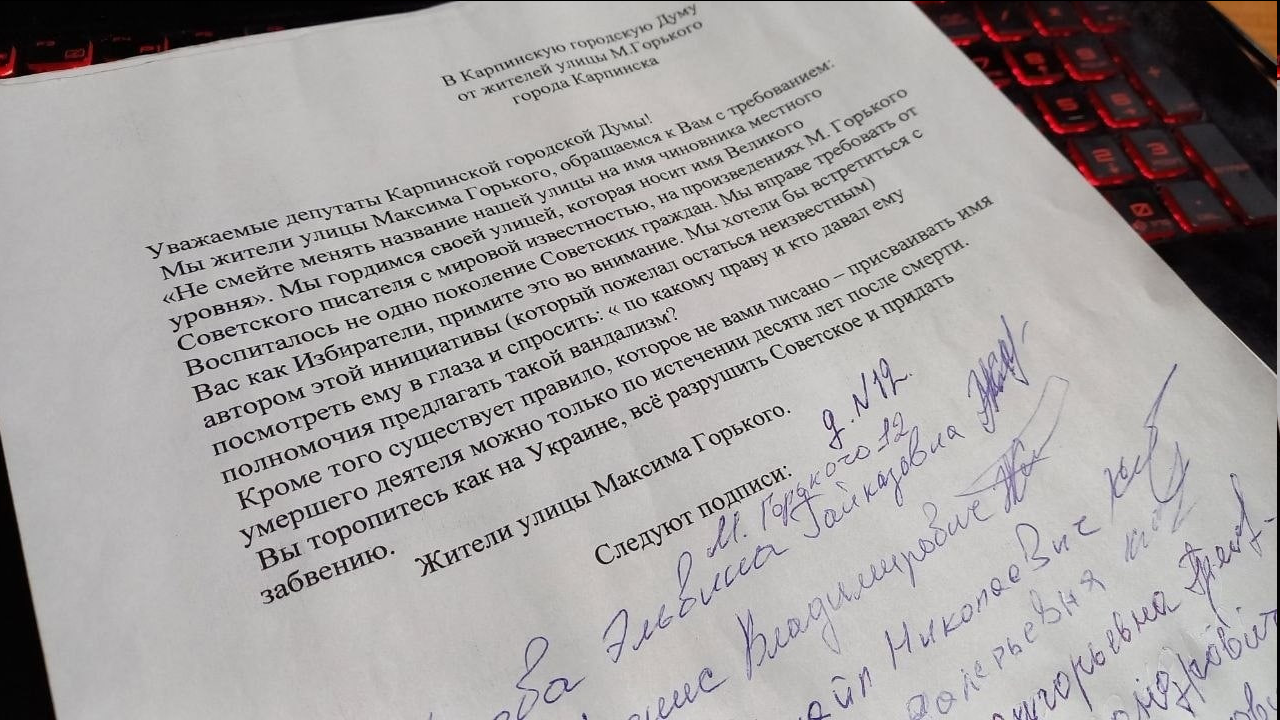 В Карпинскую городскую Думу
от жителей улицы М.Горького
города Карпинска
Уважаемые депутаты Карпинской городской Думы!
Мы жители улицы Максима Горького, обращаемся к Вам с требованием:
«Не смейте менять название нашей улицы на имя чиновника местного
уровня». Мы гордимся своей улицей, которая носит имя Великого
Советского писателя с мировой известностью, на произведениях М. Горького
Воспиталось не одно поколение Советских граждан. Мы вправе требовать от
Вас как Избиратели, примите это во внимание. Мы хотели бы встретиться с
автором этой инициативы (который пожелал остаться неизвестным)
посмотреть ему в глаза и спросить: « по какому праву и кто давал ему
полномочия предлагать такой вандализм?
Кроме того существует правило, которое не вами писано – присваивать имя
умершего деятеля можно только по истечении десяти лет после смерти.
Вы торопитесь как на Украине, всё разрушить Советское и придать
забвению.
Жители улицы Максима Горького.
Следуют подписи:
д. N12.
М. Горького 12
Эльвина Гайказовна
Владимирович
Николаевич